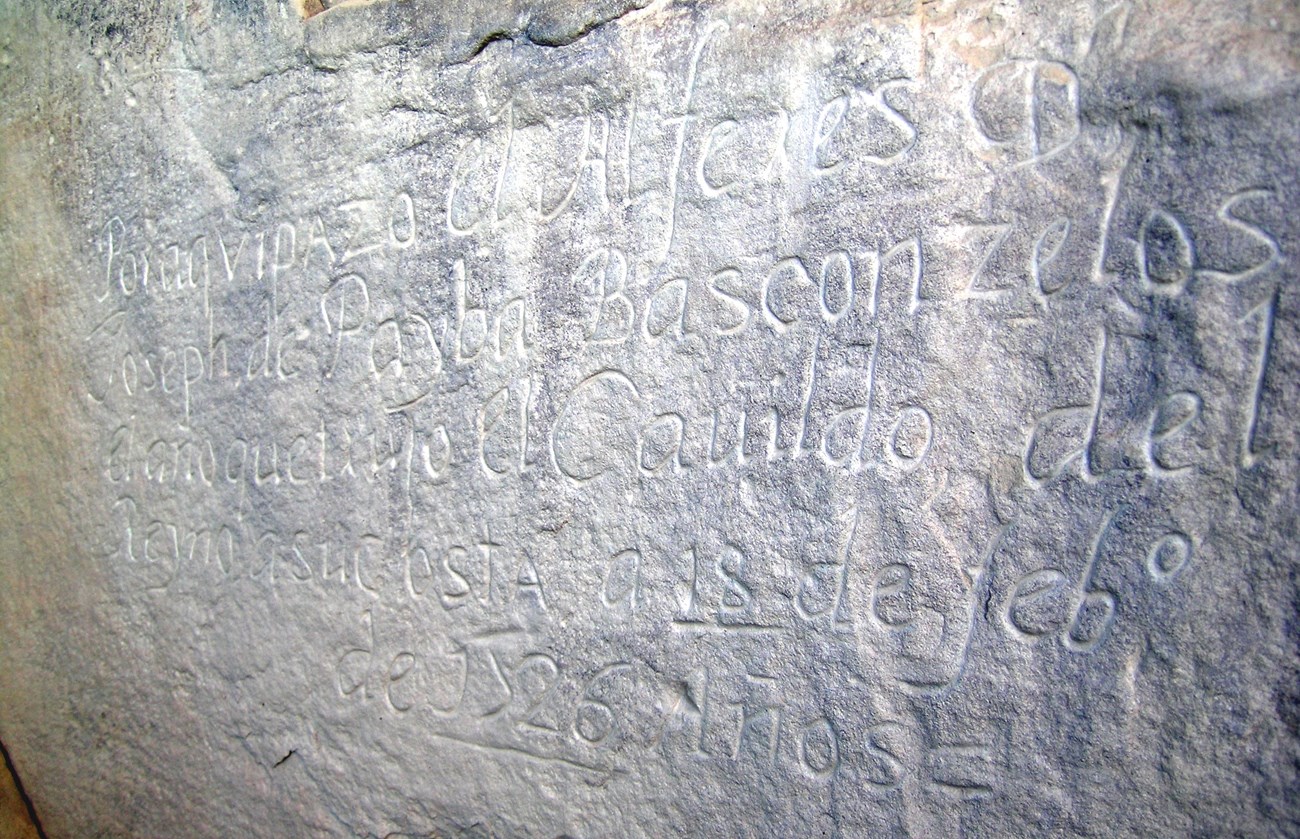 Por aqvi pazo el Alferes D.ⁿ
Joseph de Payba Basconzelos
el año que trujo el Cauildo del
Reyno a su costA a 18 de febº
de 1526 Años